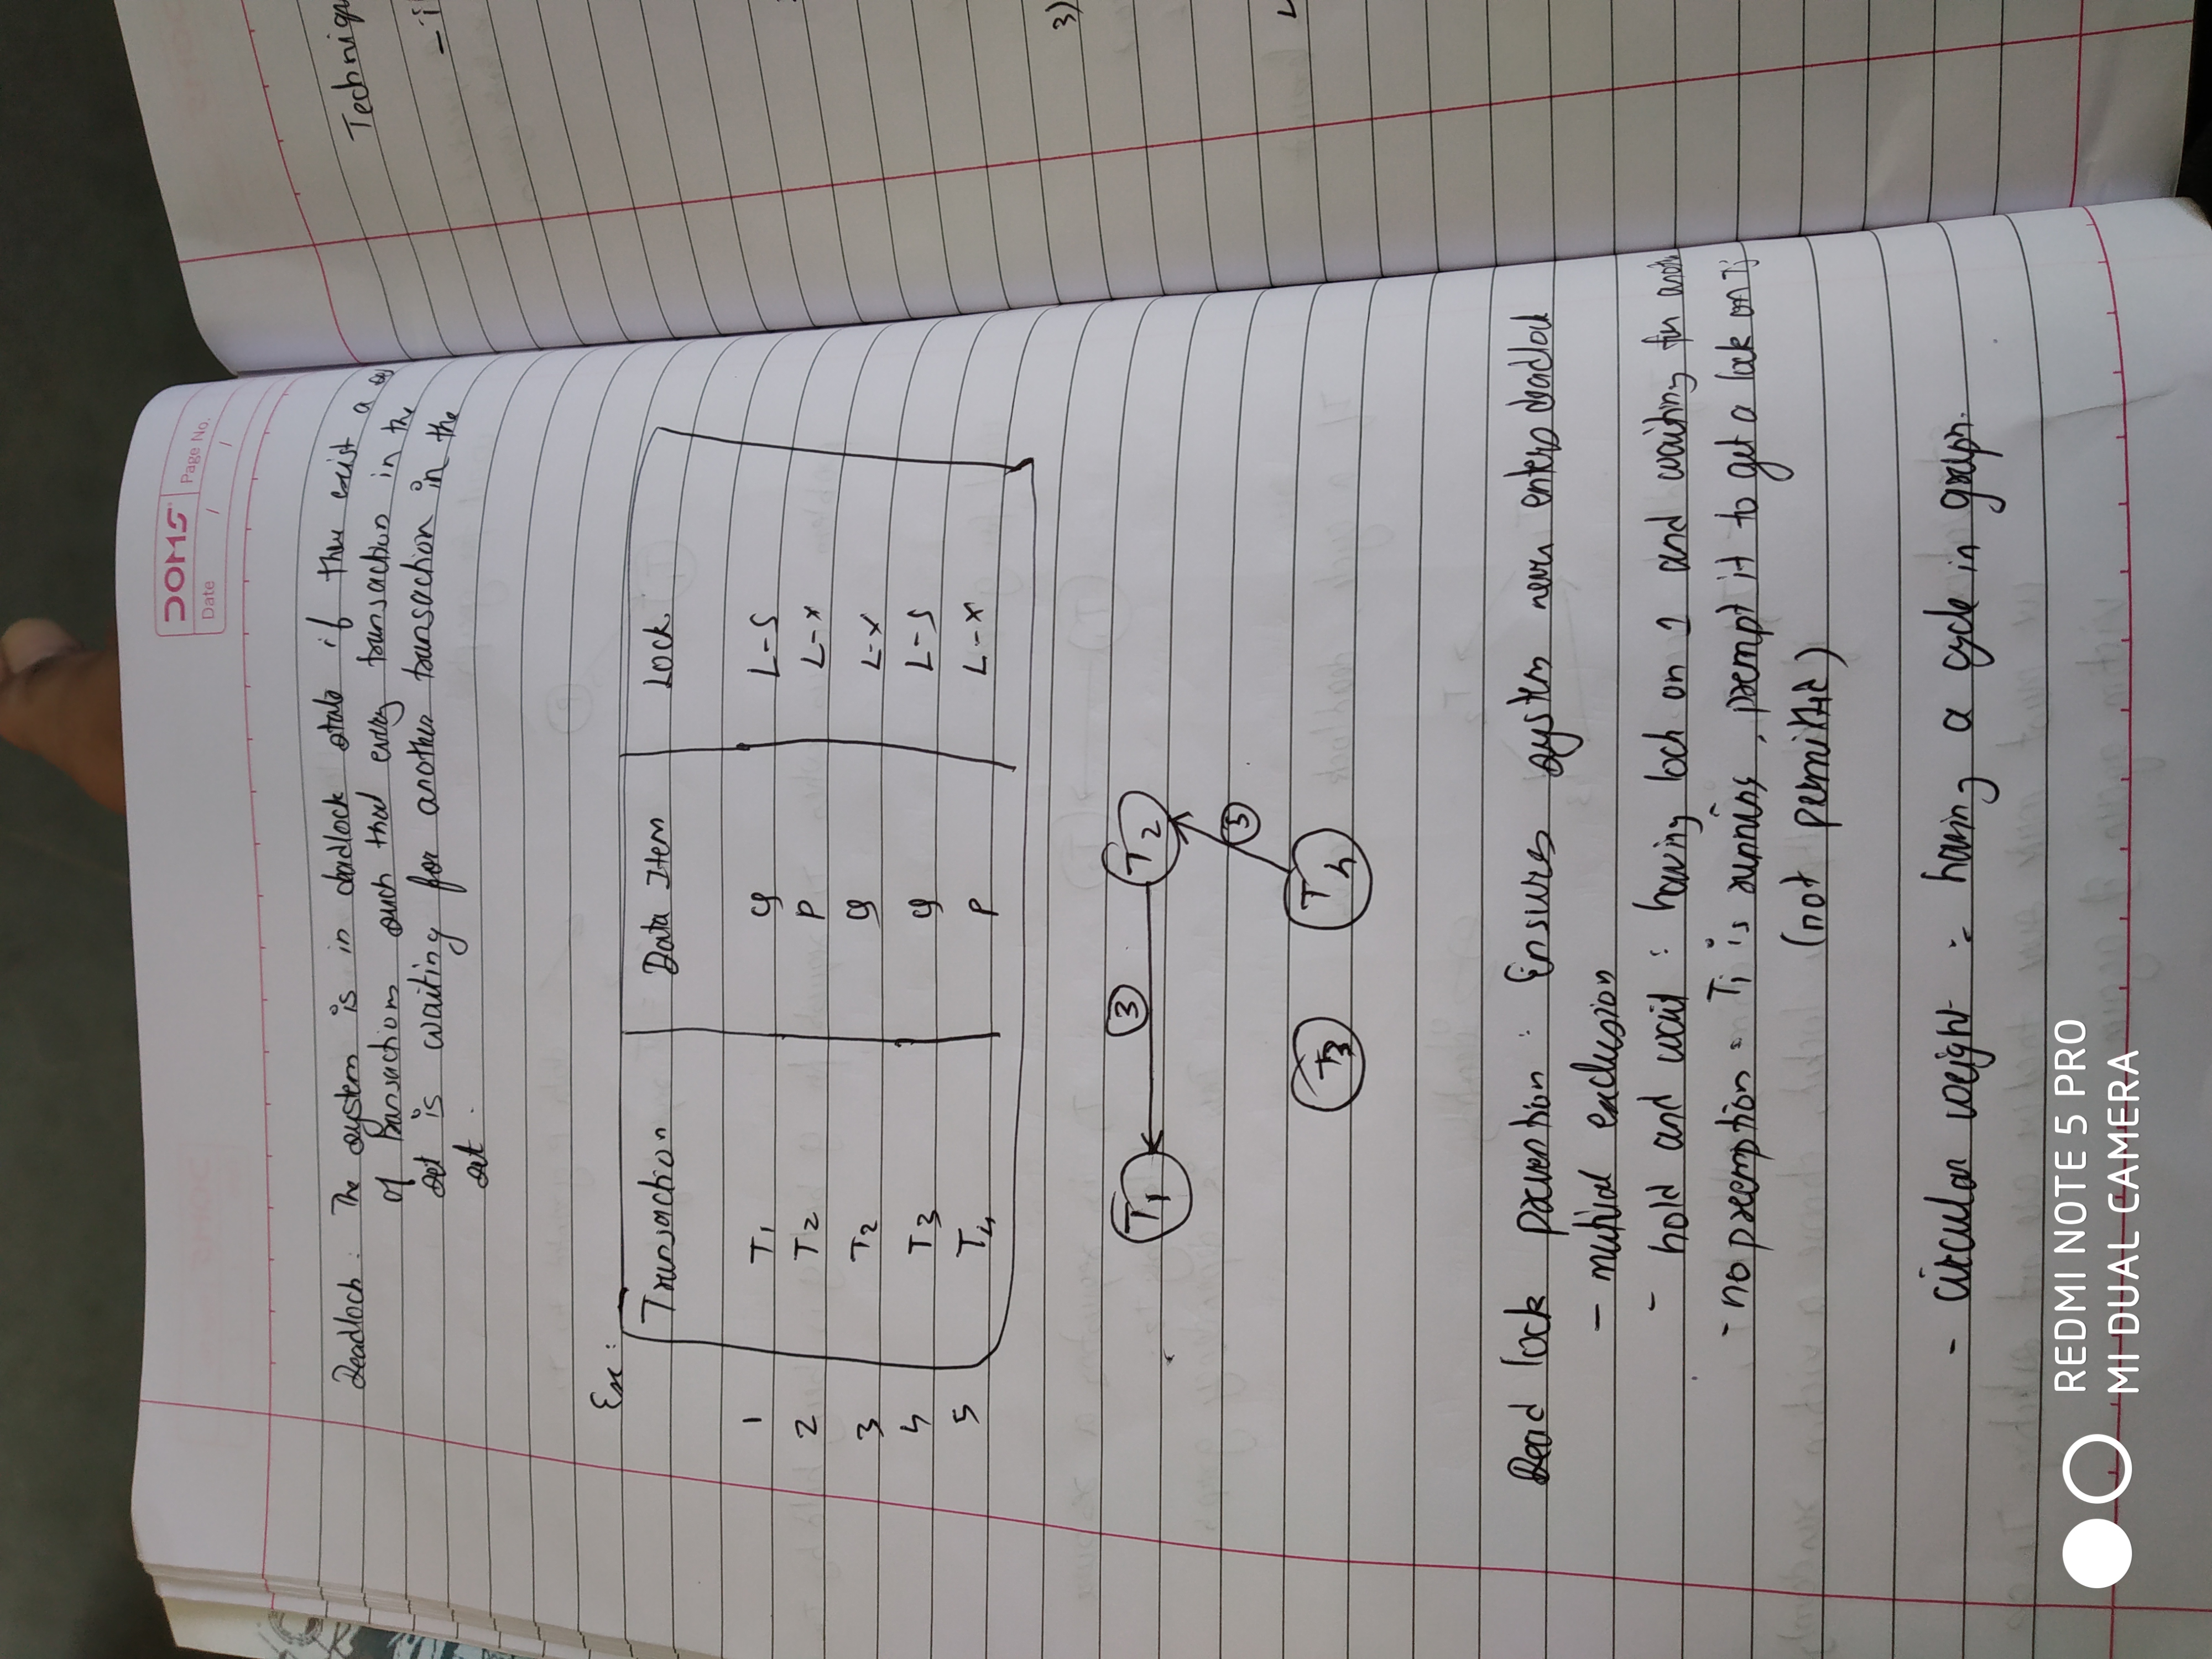 DOMS
Page No.
Date / /
Deadlock : The system is in deadlock state if there exist a set
of transactions such that every transaction in the
set is waiting for another transaction in the
set .
Ex :
Transaction Data Item Lock
1 T1 Q L-S
2 T2 P L-X
3 T2 Q L-X
4 T3 Q L-S
5 T4 P L-X
T1 3 T2
5
T3 T4
Dead lock prevention : Ensures system never enters deadlock
- mutual exclusion
- hold and wait : having lock on 1 and waiting for another
- no preemption = Ti is running, prempt it to get a lock on Tj
(not permitted)
- circular weight = having a cycle in graph.
Techniqu
3)
REDMI NOTE 5 PRO
MI DUAL CAMERA